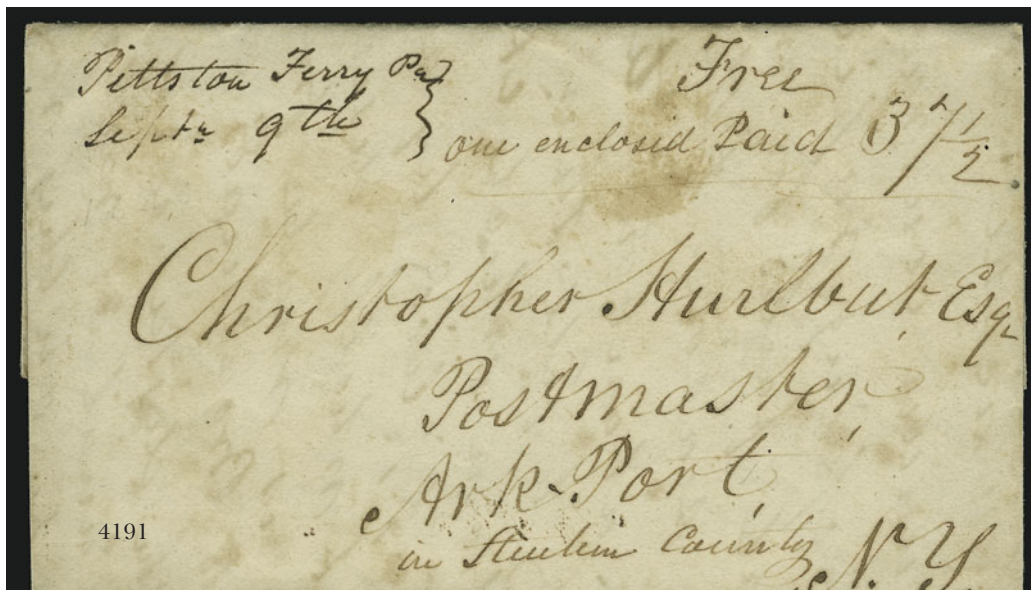 Pittston Ferry Pa
Septr 9th
Free
one enclosed Paid 37 1/2
Christopher Hurlbut Esqr
Postmaster,
Ark-Port,
in Steuben County
N. Y
4191